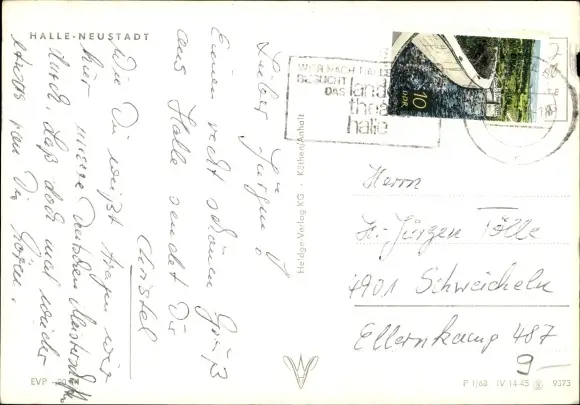 HALLE-NEUSTADT
Lieber Jürgen!
Einen recht schönen Gruß
aus Halle sendet Dir
Christel
Wie Du weißt tragen wir
hier unsere Deutschen
durch. Laß doch mal wieder
etwas von Dir hören.
EVP
Heldge-Verlag KG · Köthen/Anhalt
WER NACH HALLE
BESUCHT
DAS landes
theater
halle
10
DDR
Herrn
H.-Jürgen Tölle
4901 Schweicheln
Ellernkamp 487
9-
P 1/68 IV-14-45 9373